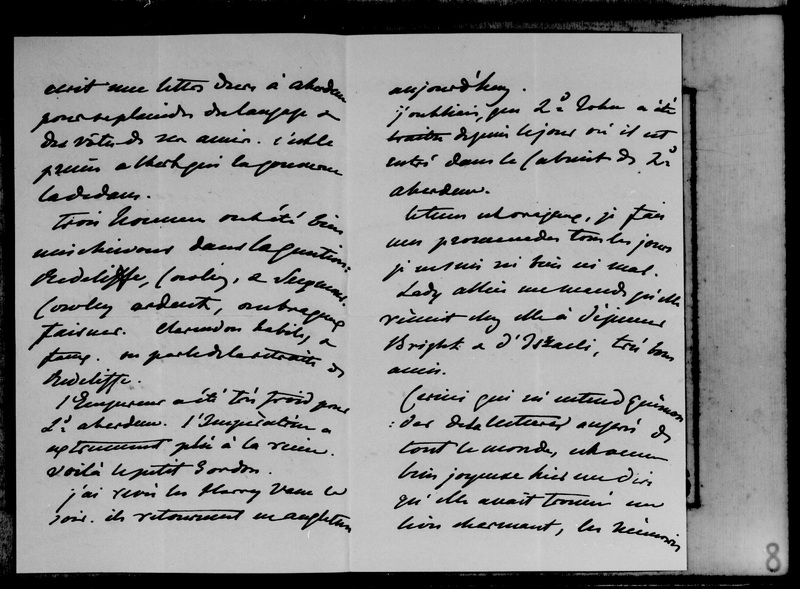 écrit une lettre dure à aberdeen
pour se plaindre du langage &
des vœux de ses amis. c'est le
prince albert qui la gouverne
là dedans.
trois hommes ont été bien
mischievous dans la question:
Redcliffe, Cowley, & Seymour.
Cowley ardent, ombrageux
faiseur. Clarendon habile, &
faux. on parle de la retraite de
Redcliffe.
l'Empereur a été très froid pour
Ld aberdeen. l'Impératrice a
extrêmement plu à la reine.
voilà le petit Gordon.
j'ai revu les Harry Vane ce
soir. ils retournent en angleterre
aujourd'huy.
j'oubliais, que Ld John a été
traitre depuis le jour où il est
entré dans le Cabinet de Ld
aberdeen.
le tems est orageux, je fais
mes promenades tous les jours
je ne suis ni bien ni mal.
Lady allice me mande qu'elle
réunit chez elle à déjeuner
Bright & d'Israeli, très bons
amis.
Cerini qui m'entend
des lectures auprès de
tout le monde, est venue
bien joyeuse hier me dire
qu'elle avait trouvé un
livre charmant, les Mémoires
8